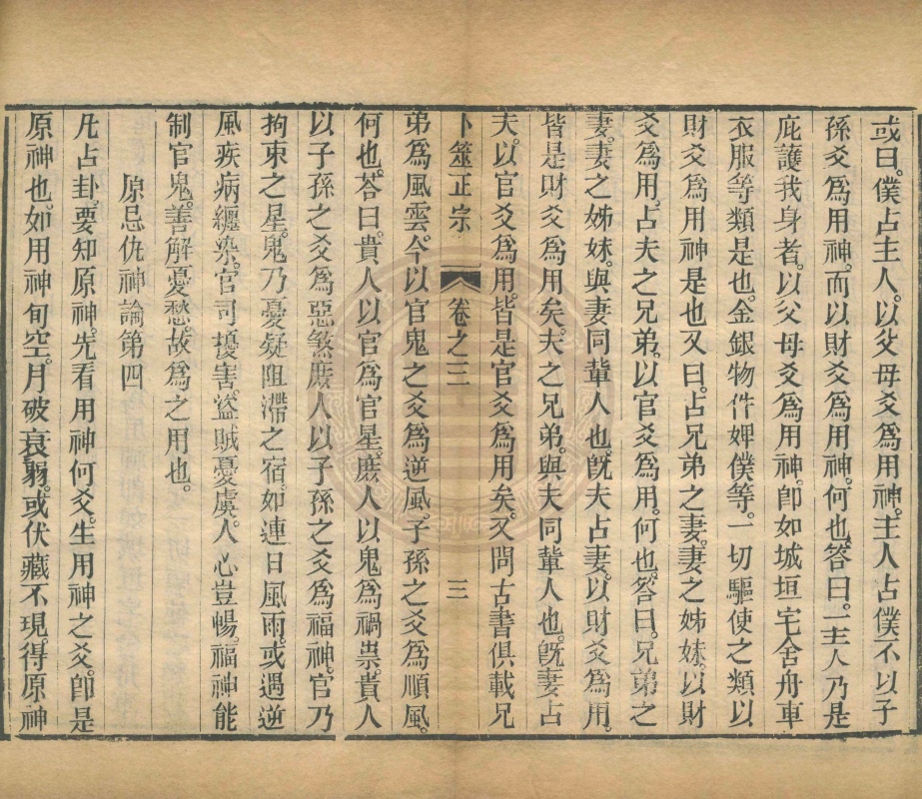 或曰。僕占主人。以父母爻爲用神。主人占僕。不以子
孫爻爲用神。而以財爻爲用神。何也。答曰。主人乃是
庇護我身者。以父母爻爲用神。卽如城垣宅舍舟車
衣服等類是也。金銀物件婢僕等。一切驅使之類以
財爻爲用神是也又曰。占兄弟之妻。妻之姊妹。以財
爻爲用。占夫之兄弟。以官爻爲用。何也。答曰。兄弟之
妻。妻之姊妹。與妻同輩人也。旣夫占妻。以財爻爲用。
皆是財爻爲用矣。夫之兄弟。與夫同輩人也。旣妻占
夫。以官爻爲用。皆是官爻爲用矣。又問古書俱載兄
卜筮正宗 卷之三 三
弟爲風雲。今以官鬼之爻爲逆風。子孫之爻爲順風。
何也。荅曰。貴人以官爲官星。庶人以鬼爲禍祟。貴人
以子孫之爻爲惡煞庶人以子孫之爻爲福神。官乃
拘束之星。鬼乃憂疑阻滯之宿。如連日風雨。或遇逆
風疾病纏染。官司擾害。盜賊憂虞。人心豈暢。福神能
制官鬼。善解憂愁。故爲之用也。
原忌仇神論第四
凡占卦。要知原神。先看用神何爻。生用神之爻。卽是
原神也。如用神旬空。月破衰弱。或伏藏不現。得原神